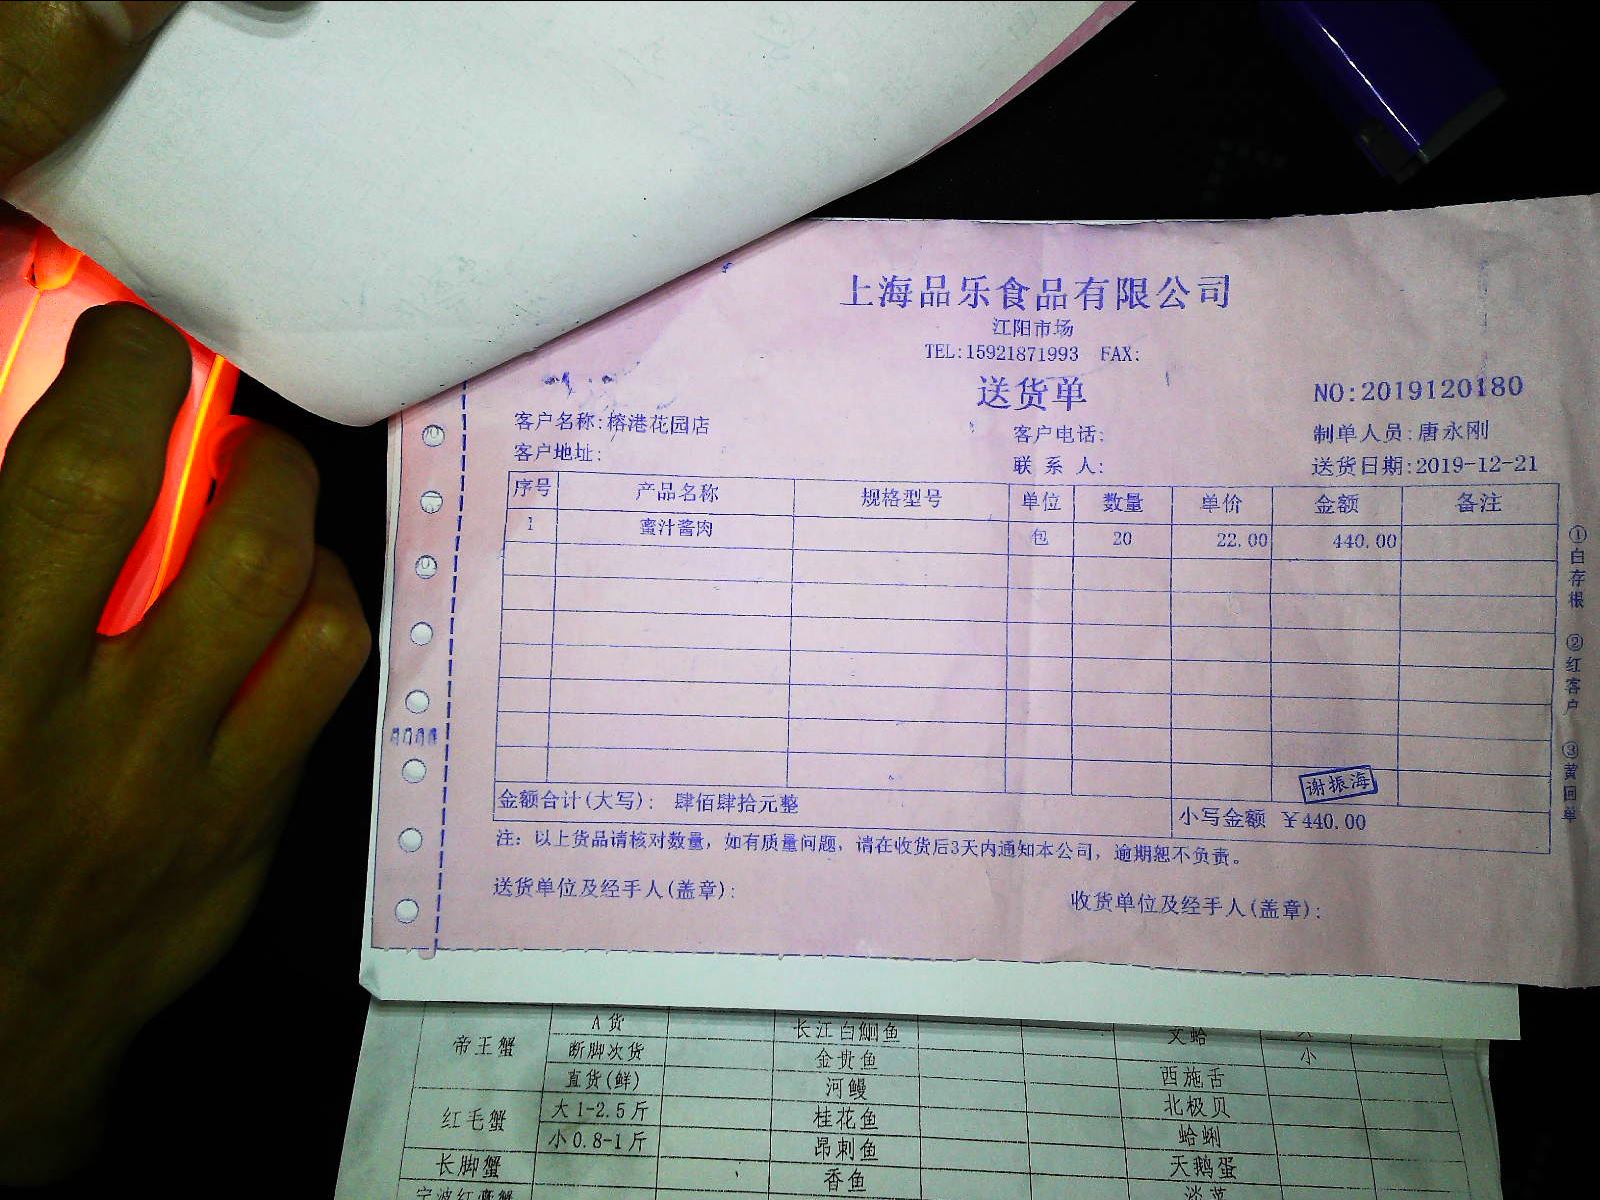 上海品乐食品有限公司
江阳市场
TEL:15921871993 FAX:
送货单
NO:2019120180
客户名称:榕港花园店
客户电话:
制单人员:唐永刚
客户地址:
联系人:
送货日期:2019-12-21
序号 产品名称 规格型号 单位 数量 单价 金额 备注
1 蜜汁酱肉 包 20 22.00 440.00
谢振海
金额合计(大写): 肆佰肆拾元整
小写金额 ¥440.00
注: 以上货品请核对数量, 如有质量问题, 请在收货后3天内通知本公司, 逾期恕不负责。
送货单位及经手人(盖章):
收货单位及经手人(盖章):
①白存根 ②红客户 ③黄回单
帝王蟹 A货 长江白鮰鱼 文蛤 大
断脚次货 金贵鱼 小
直货(鲜) 河鳗 西施舌
红毛蟹 大1-2.5斤 桂花鱼 北极贝
小0.8-1斤 昂刺鱼 蛤蜊
长脚蟹 香鱼 天鹅蛋
宁波红膏蟹 淡菜